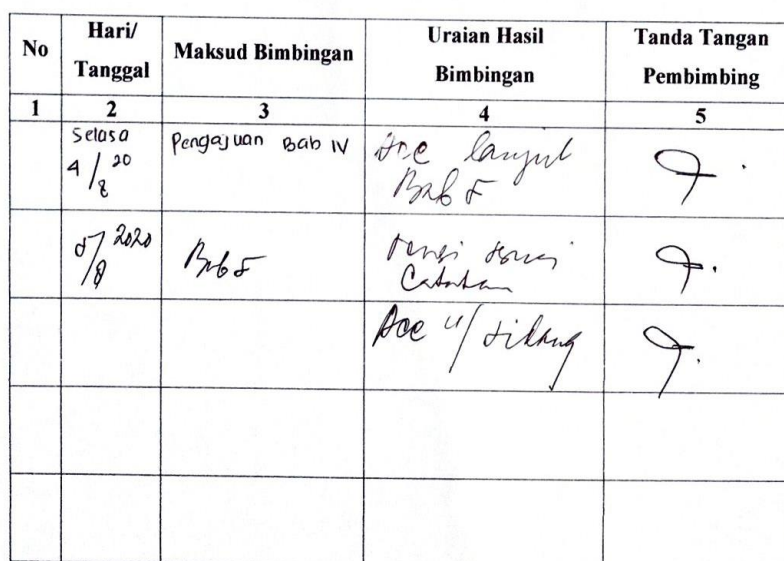 No
Hari/
Tanggal
Maksud Bimbingan
Uraian Hasil
Bimbingan
Tanda Tangan
Pembimbing
1
2
3
4
5
Selasa
4/8 20
Pengajuan Bab IV
Acc lanjut
Bab 5
5/8 2020
Bab 5
revisi sesuai
Catatan
Acc u/ sidang